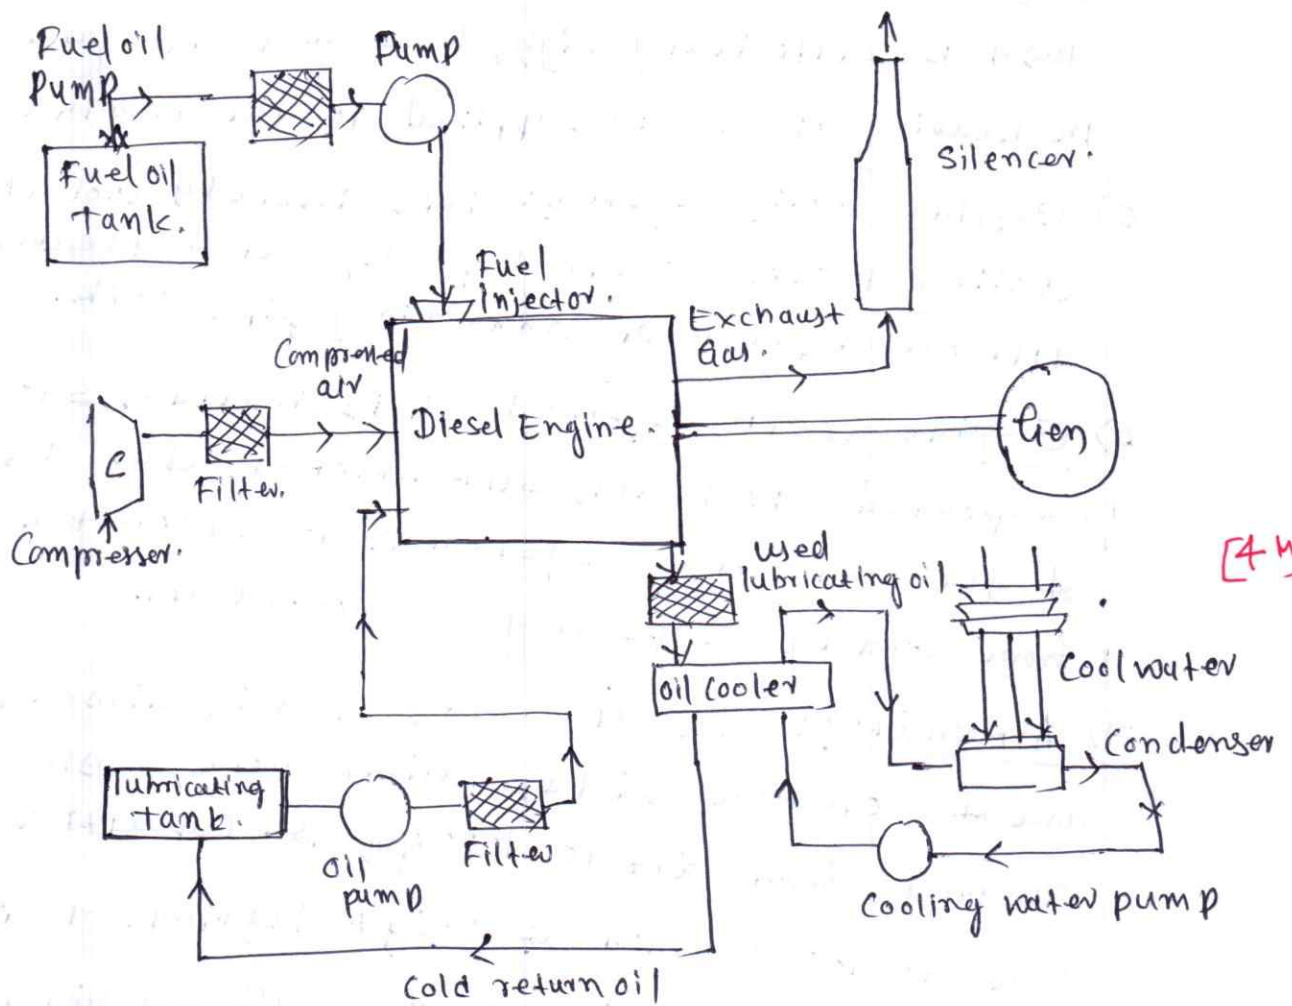 Fuel oil
Pump
Pump
Fuel oil
tank.
Silencer.
Fuel
Injector.
Exchaust
Gas.
Compressed
air
Diesel Engine.
Gen
C
Filter.
Compresser.
used
lubricating oil
[4 M
Cool water
oil cooler
Condenser
lubricating
tank.
Filter
oil
pump
Cooling water pump
Cold return oil